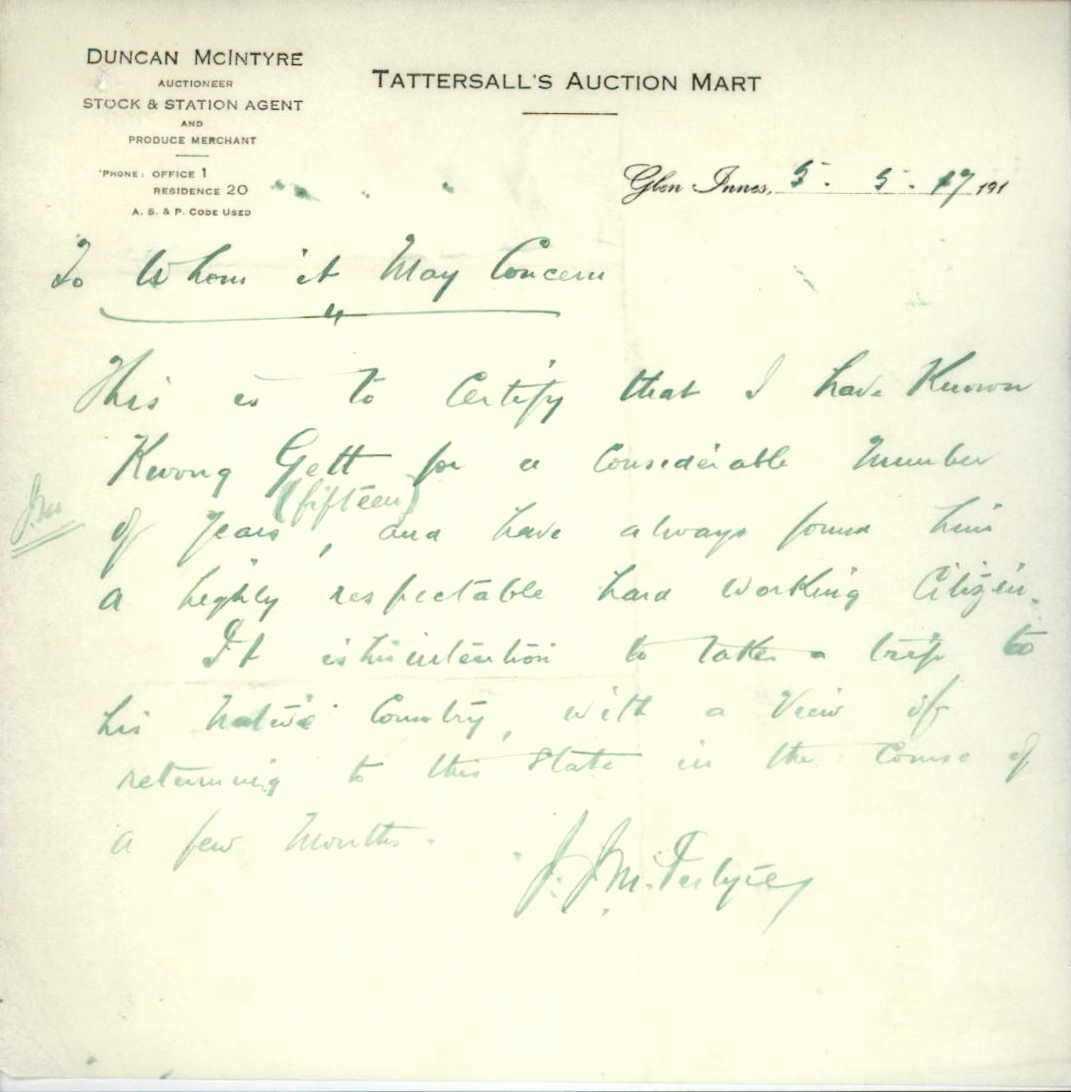 DUNCAN MCINTYRE
AUCTIONEER
STOCK & STATION AGENT
AND
PRODUCE MERCHANT
'PHONE: OFFICE 1
RESIDENCE 20
A. B. & P. CODE USED
TATTERSALL'S AUCTION MART
Glen Innes, 5. 5. 17 191
To Whom it May Concern
This is to Certify that I have Known
Kwong Gett for a considerable Number
(fifteen)
of years, and have always found him
a highly respectable hard working Citizen.
It is his intention to take a trip to
his native Country, with a View of
returning to this State in the Course of
a few Months.
J. J.